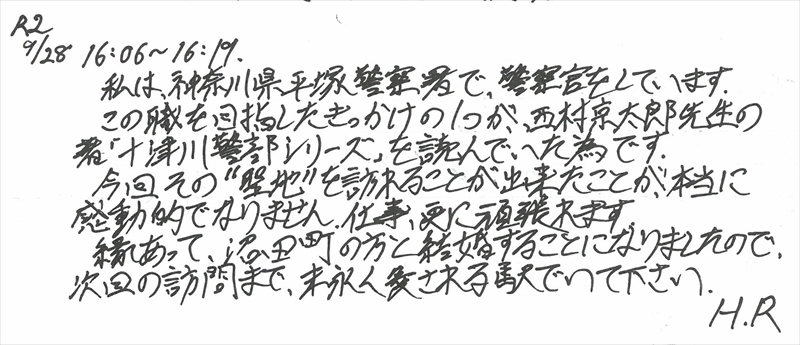 R2
9/28 16:06~16:19.
私は、神奈川県平塚警察署で、警察官をしています.
この職を目指したきっかけの1つが、西村京太郎先生の
著「十津川警部シリーズ」を読んでいた為です.
今回その“聖地”を訪れることが出来たことが、本当に
感動的でなりません. 仕事、更に頑張れます.
縁あって、沼田町の方と結婚することになりましたので、
次回の訪問まで、末永く愛される駅でいて下さい.
H.R